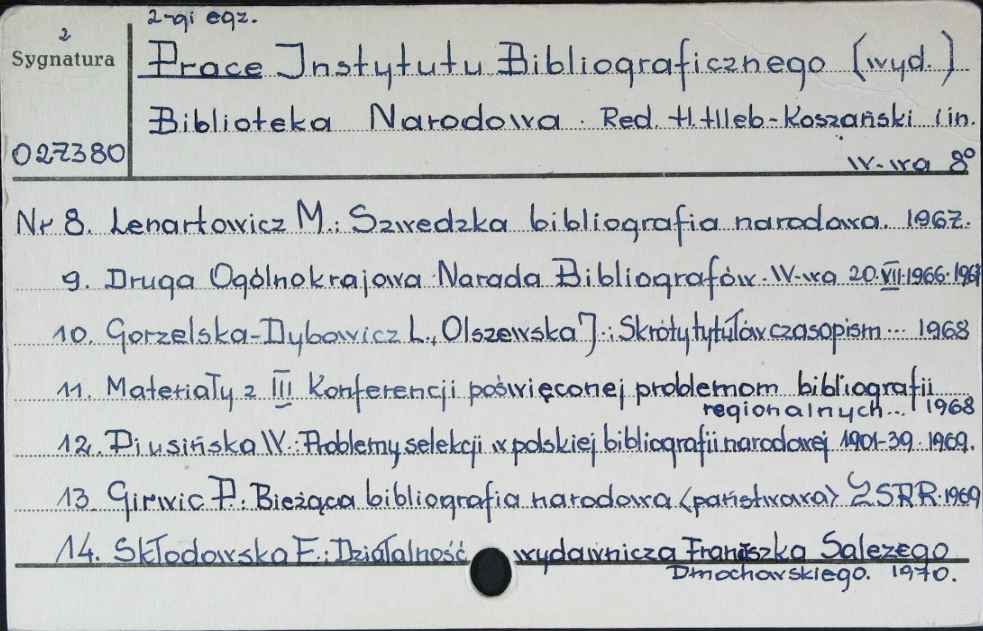 2-gi egz.
2
Sygnatura
Prace Instytutu Bibliograficznego (wyd.)
Biblioteka Narodowa. Red. H. Hleb-Koszański i in.
027380
W-wa 8°
Nr 8. Lenartowicz M.: Szwedzka bibliografia narodowa. 1967.
9. Druga Ogólnokrajowa Narada Bibliografów. W-wa 20.VII.1966. 1967
10. Gorzelska-Dybowicz L., Olszewska J.: Skróty tytułów czasopism... 1968
11. Materiały z III Konferencji poświęconej problemom bibliografii
regionalnych... 1968
12. Piusińska W.: Problemy selekcji w polskiej bibliografii narodowej 1901-39. 1969.
13. Girwic P. Bieżąca bibliografia narodowa (państwowa) ZSRR. 1969
14. Skłodowska F.: Działalność wydawnicza Franciszka Salezego
Dmochowskiego. 1970.